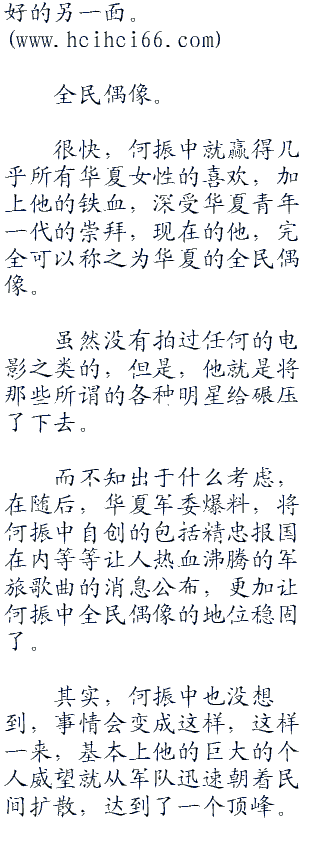 好的另一面。
(www.hcihci66.com)
全民偶像。
很快，何振中就赢得几
乎所有华夏女性的喜欢，加
上他的铁血，深受华夏青年
一代的崇拜，现在的他，完
全可以称之为华夏的全民偶
像。
虽然没有拍过任何的电
影之类的，但是，他就是将
那些所谓的各种明星给碾压
了下去。
而不知出于什么考虑，
在随后，华夏军委爆料，将
何振中自创的包括精忠报国
在内等等让人热血沸腾的军
旅歌曲的消息公布，更加让
何振中全民偶像的地位稳固
了。
其实，何振中也没想
到，事情会变成这样，这样
一来，基本上他的巨大的个
人威望就从军队迅速朝着民
间扩散，达到了一个顶峰。